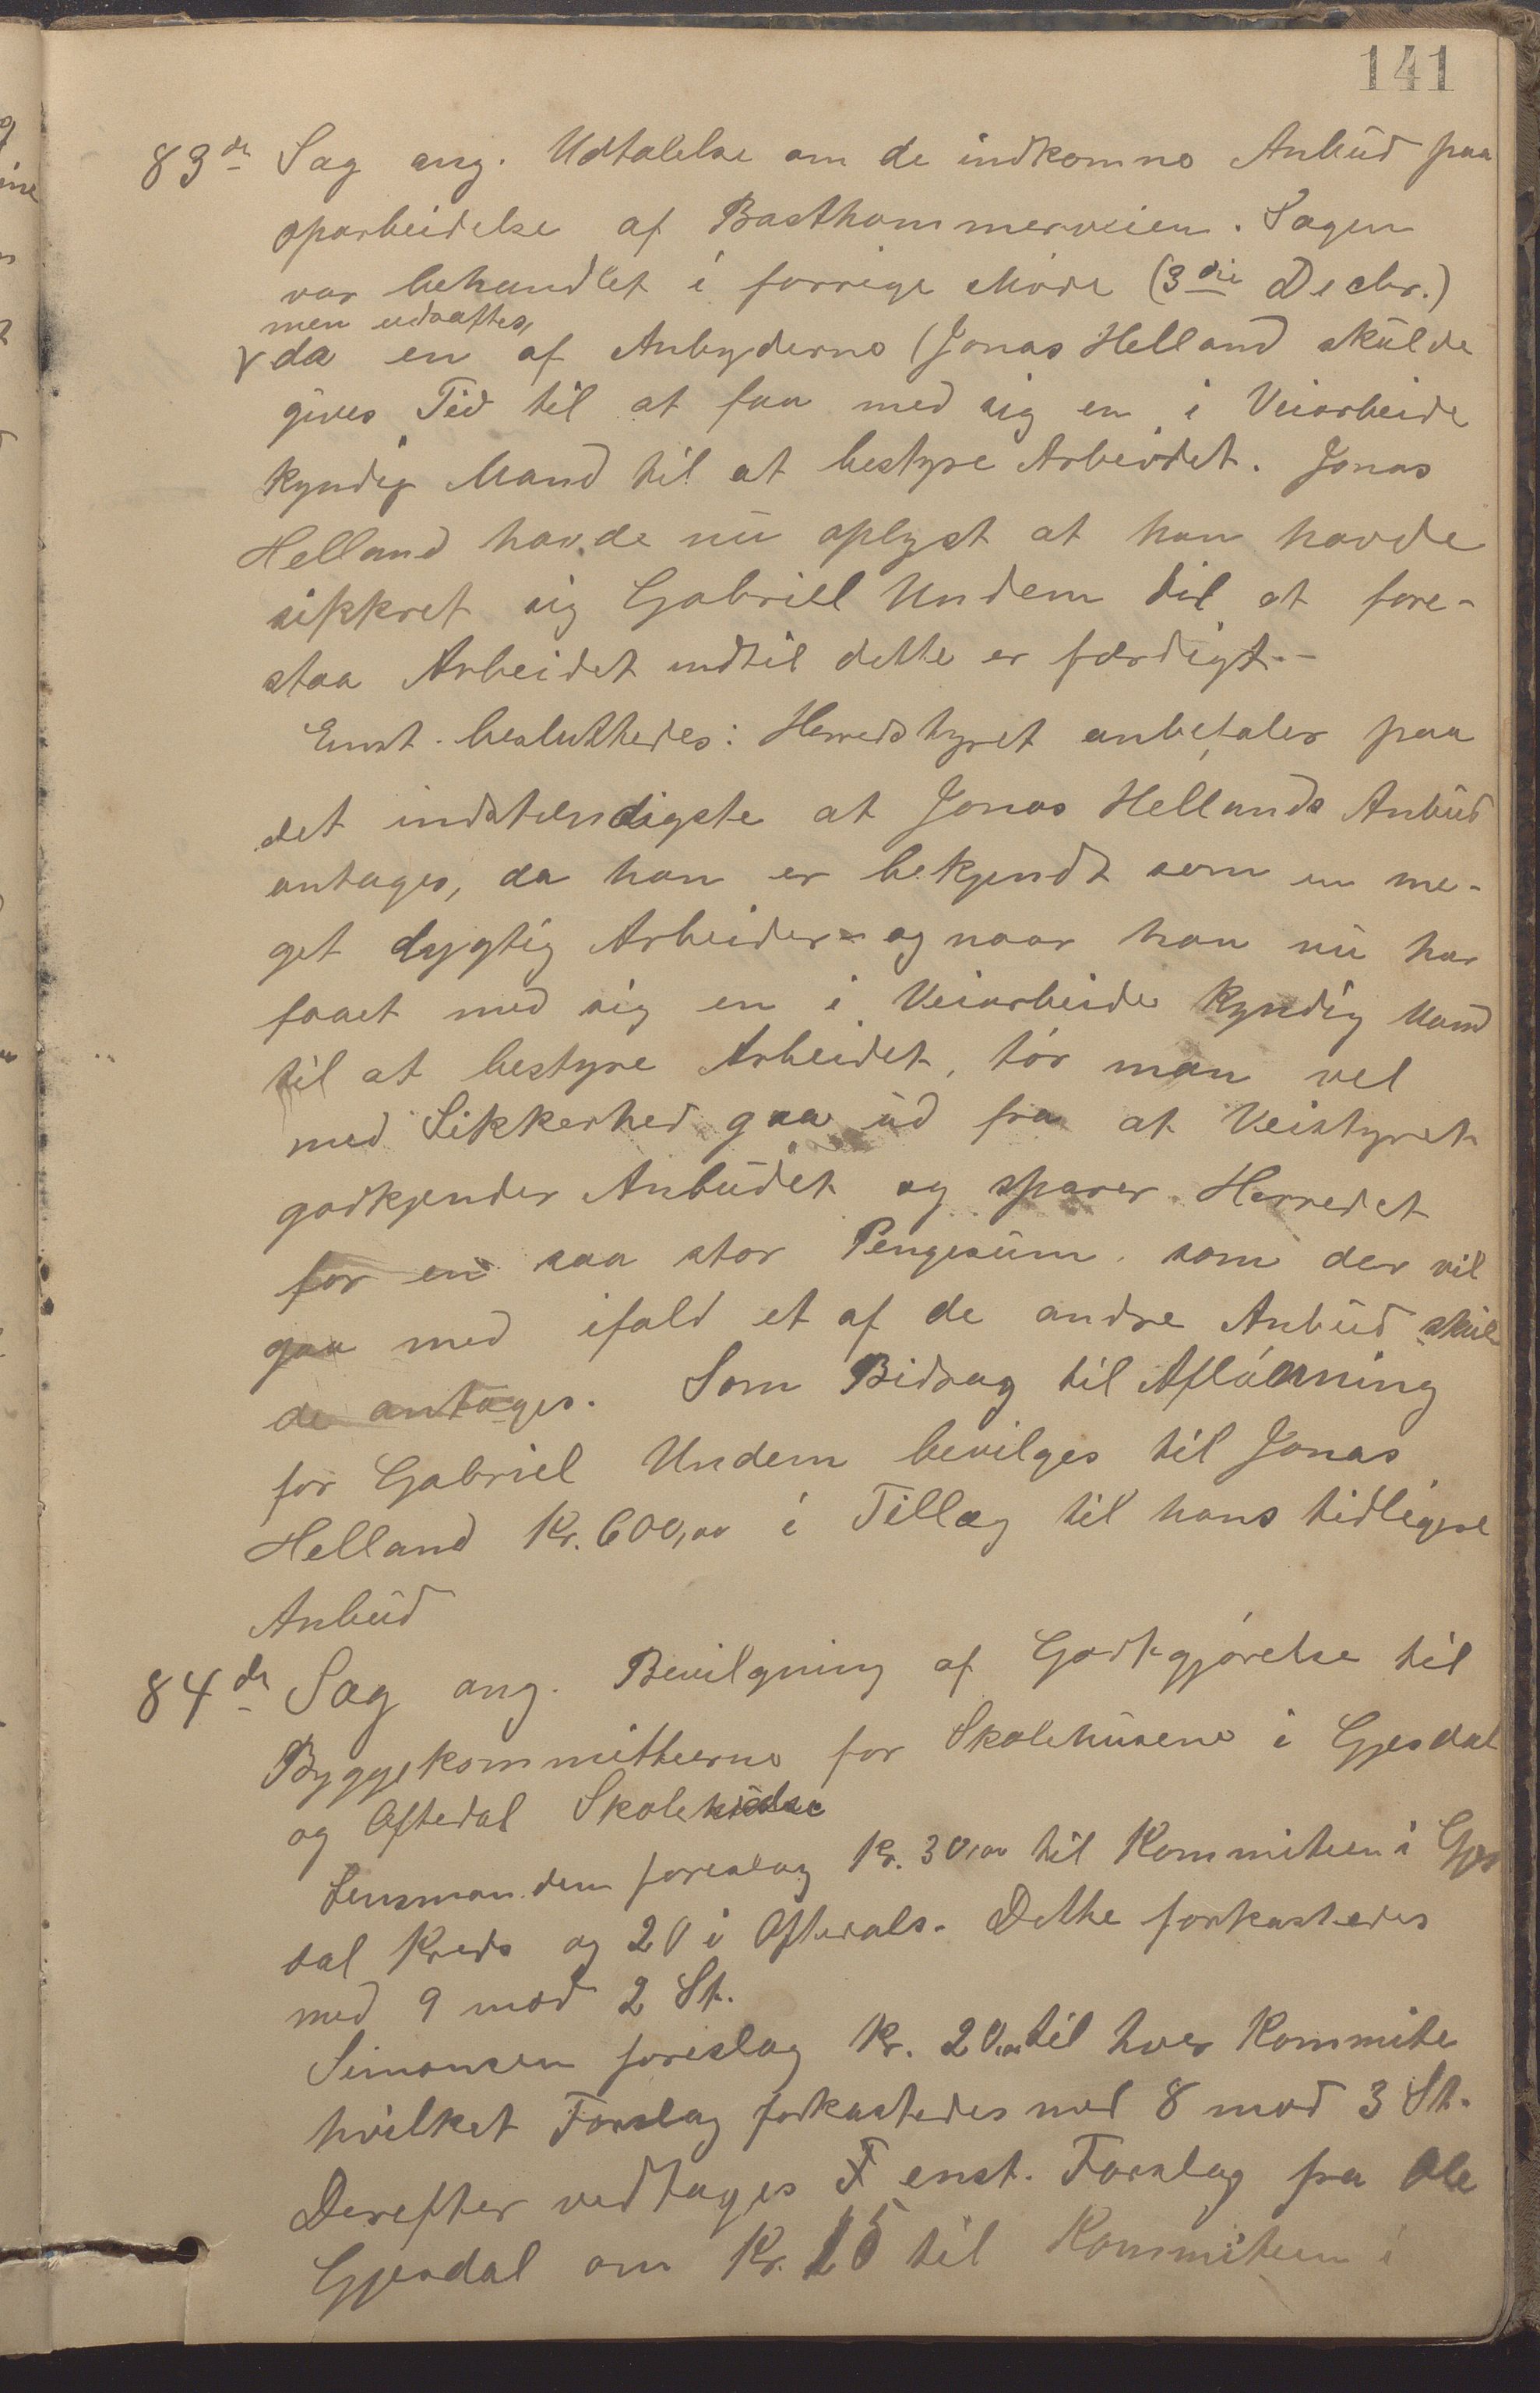 141
83de Sag ang. Udtalelse om de indkomne Anbud paa
oparbeidelse af Basthammerveien. Sagen
var behandlet i forrige Møde (3die Decbr.)
men udsattes,
da en af Anbyderne (Jonas Helland skulde
gives Tid til at faa med sig en i Veiarbeide
kyndig Mand til at bestyre Arbeidet. Jonas
Helland havde nu oplyst at han havde
sikkret sig Gabriel Undem til at fore-
staa Arbeidet indtil dette er færdigt.-
Enst. besluttedes: Herredstyret anbefaler paa
det indstændigste at Jonas Hellands Anbud
antages, da han er bekjendt som en me-
get dygtig Arbeider - og naar han nu har
faaet med sig en i Veiarbeide kyndig Mand
til at bestyre Arbeidet, tør man vel
med Sikkerhed gaa ud fra at Veistyret
godkjender Anbudet og sparer Herredet
for en saa stor Pengesum som der vil
gaa med ifald et af de andre Anbud skul
de antages. Som Bidrag til Aflønning
for Gabriel Undem bevilges til Jonas
Helland Kr. 600,00 i Tillæg til hans tidligere
Anbud
84de Sag ang. Bevilgning af Godtgjørelse til
Byggekommitteerne for Skolehusene i Gjesdal
og Oftedal Skole
Lensmanden foreslog Kr. 30,00 til Kommiteen i Gjes
dal Kreds og 20 i Oftedals. Dette forkastedes
med 9 mod 2 St.
Simonsen foreslog Kr. 20,00 til hver Kommite
hvilket Forslag forkastedes med 8 mod 3 St.
Derefter vedtages F enst. Forslag fra Ole
Gjesdal om Kr. 15 til Kommiteen i